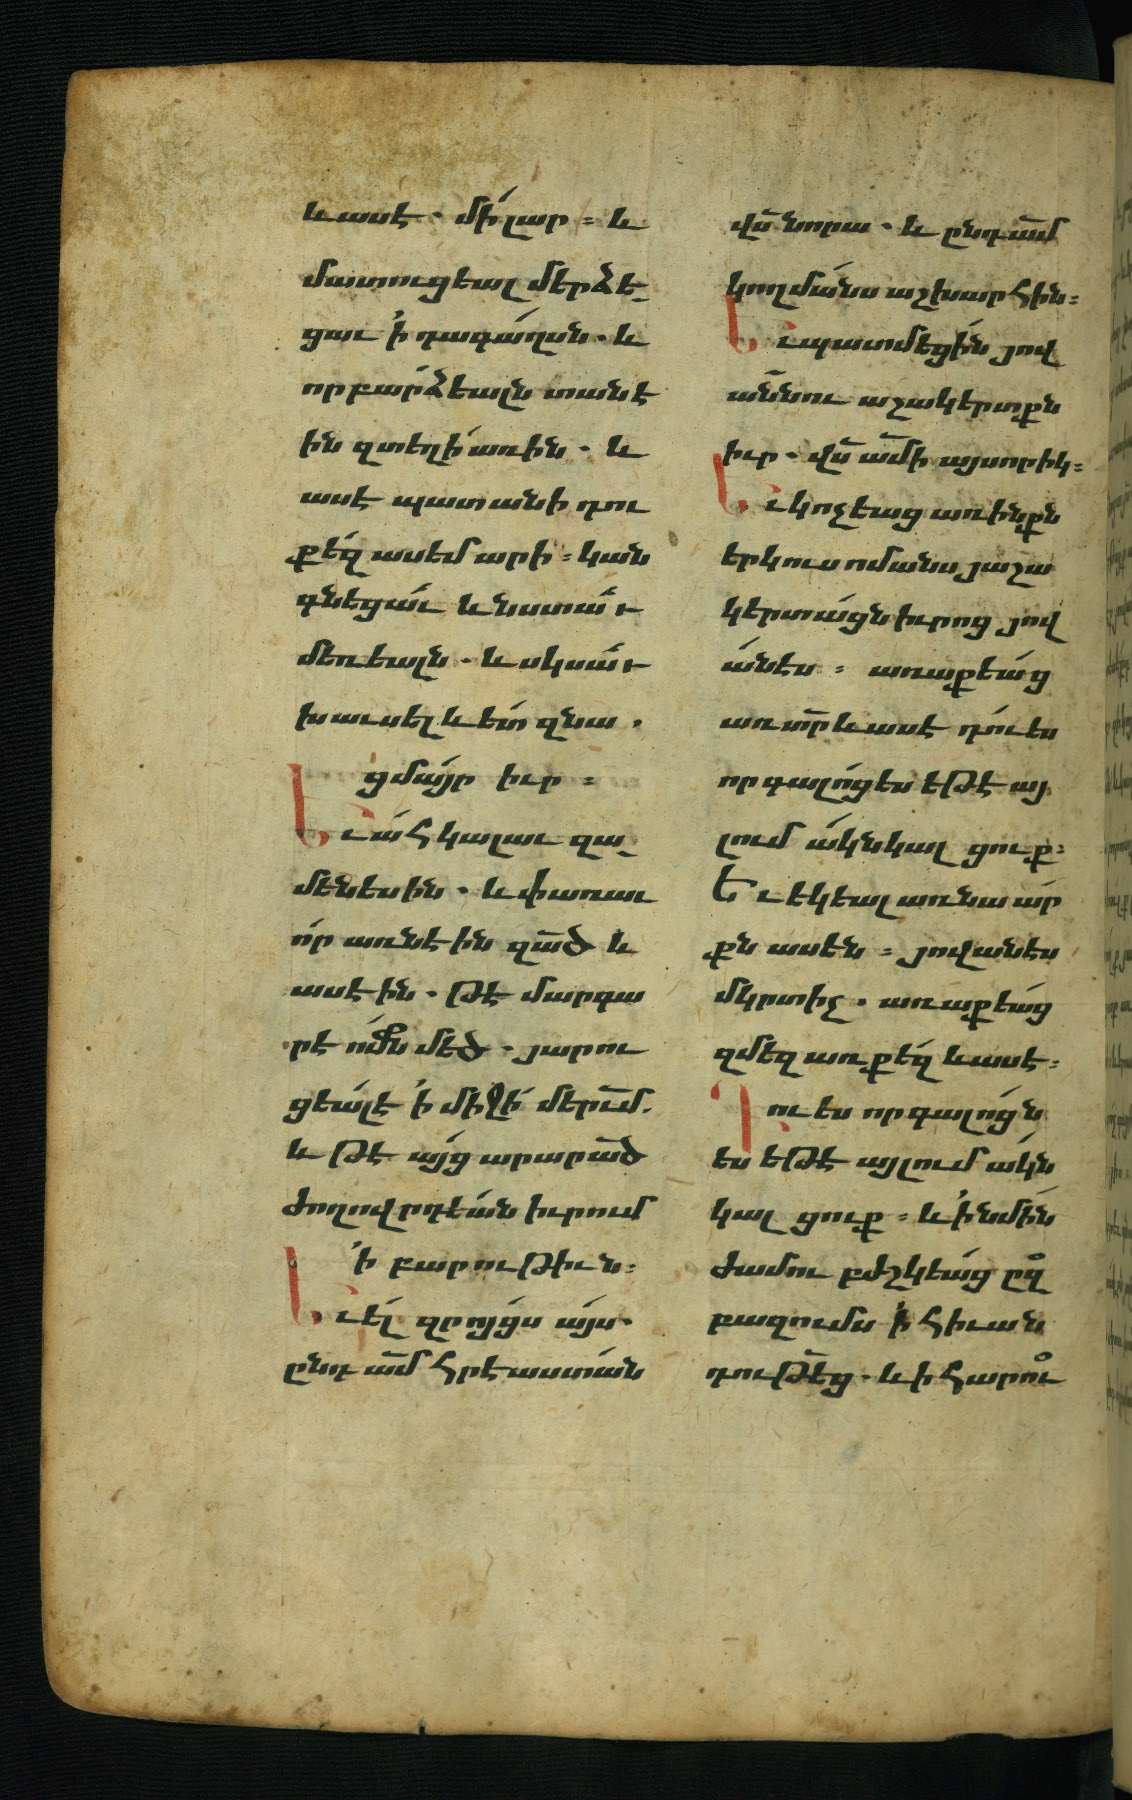 և ասէ. մի՛ լար։ և
մատուցեալ մերձե
ցաւ ՚ի դագաղսն. և
որ բարձեալն տանէ
ին զտեղի առին. և
ասէ պատանի դու
քեզ ասեմ արի։ կան
գնեցաւ և նստաւ
մեռեալն. և սկսաւ
խաւսել և ետ զնա.
ցմայր իւր։
Եւ ահ կալաւ զա
մենեսին. և փառաւ
որ առնէին զա՟ծ և
ասէին. թէ մարգա
րէ ոմն մեծ. յարու
ցեալ է ՚ի միջի մերում.
և թէ այց արար ա՟ծ
ժողովրդեան իւրում
՚ի բարութիւն։
Եւ ել զրոյցս այս.
ընդ ա՟մ հրէաստան
վ՟ս նորա. և ընդ ա՟մ
կողմանս աշխարհին։
Եւ պատմեցին յով
աննու աշակերտքն
իւր. վ՟ս ա՟մի այսորիկ։
Եւ կոչեաց առ ինքն
երկուս ոմանս յաշա
կերտացն իւրոց յով
անէս։ առաքեաց
առ տ՟ր և ասէ դու ես
որ գալոցես եթէ այ
լում ակն կալցուք։
Եւ եկեալ առ նա ար
քն ասեն։ յովանէս
մկրտիչ. առաքեաց
զմեզ առ քեզ և ասէ։
Դու ես որ գալոցն
ես եթէ այլում ակն
կալցուք։ և ՚ինմին
ժամու բժշկեաց զ
բազումս ՚ի հիւան
դութեց. և ի հարու